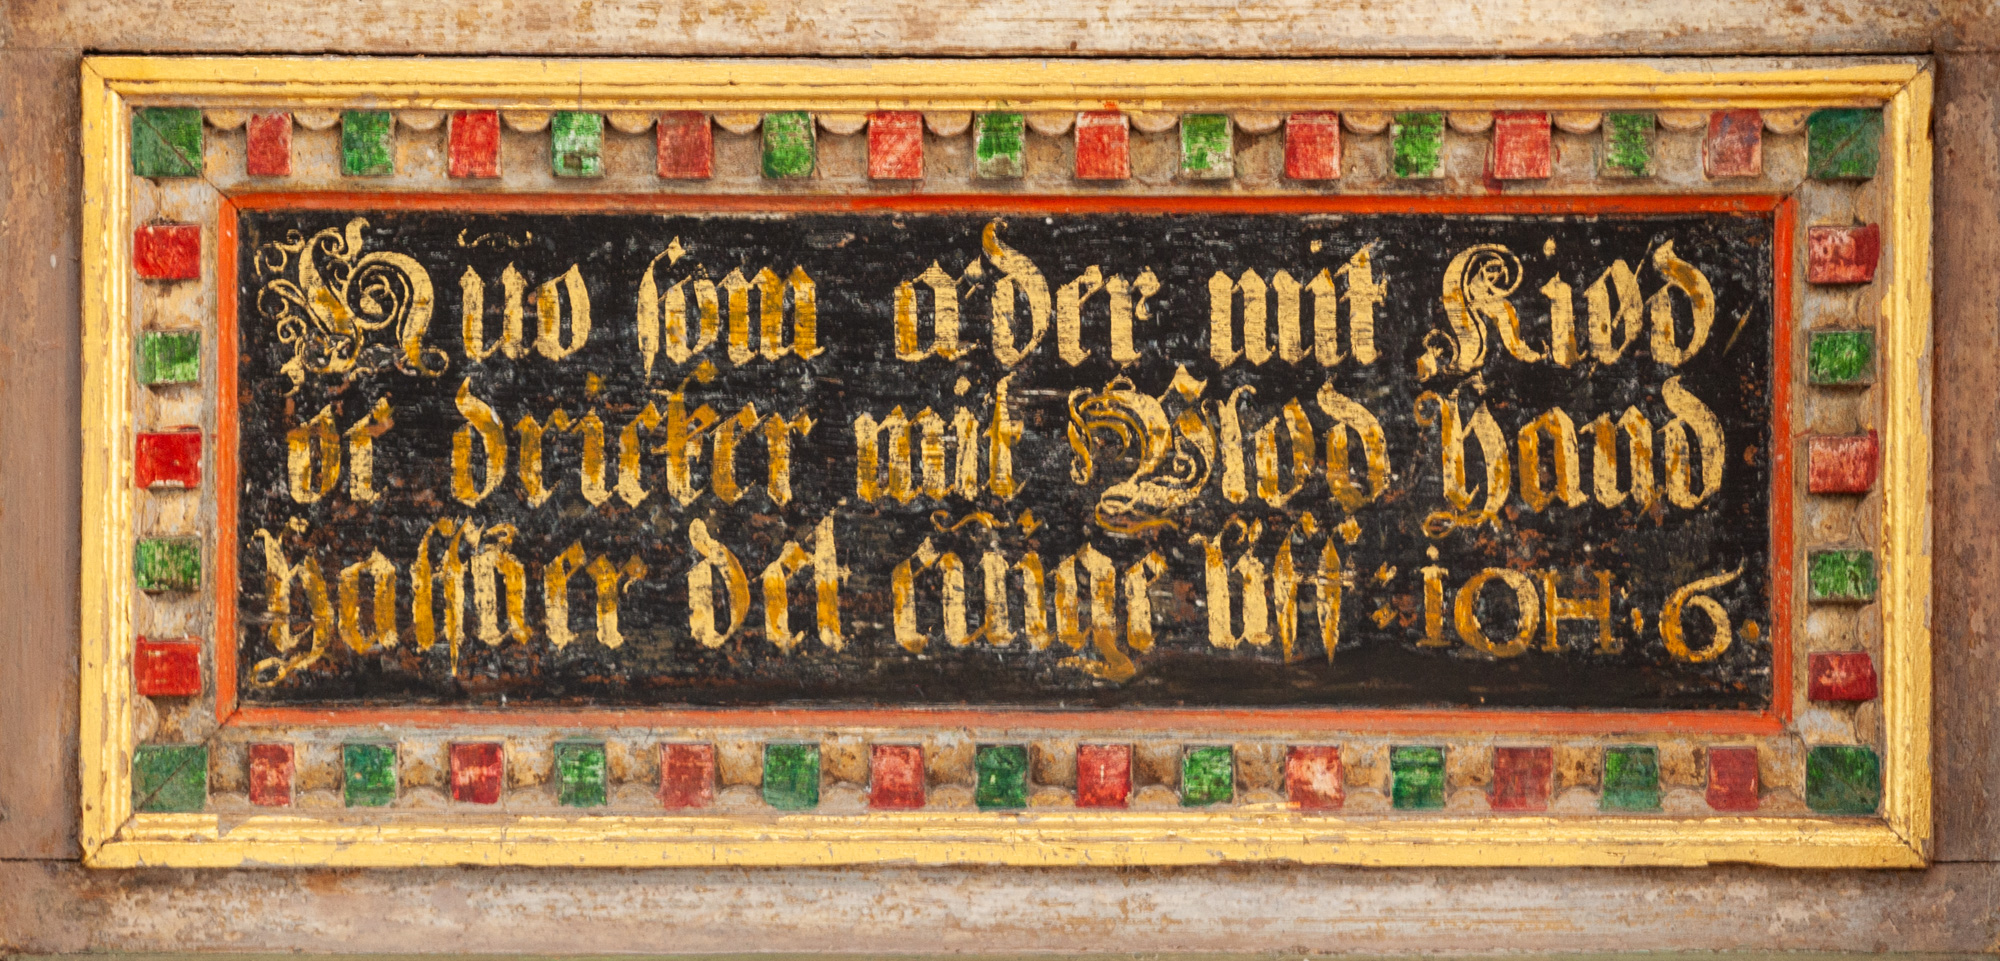 Huo som æder mit Kiød
oc dricker mit Blod hand
haffuer det euige liff : IOH : 6 .